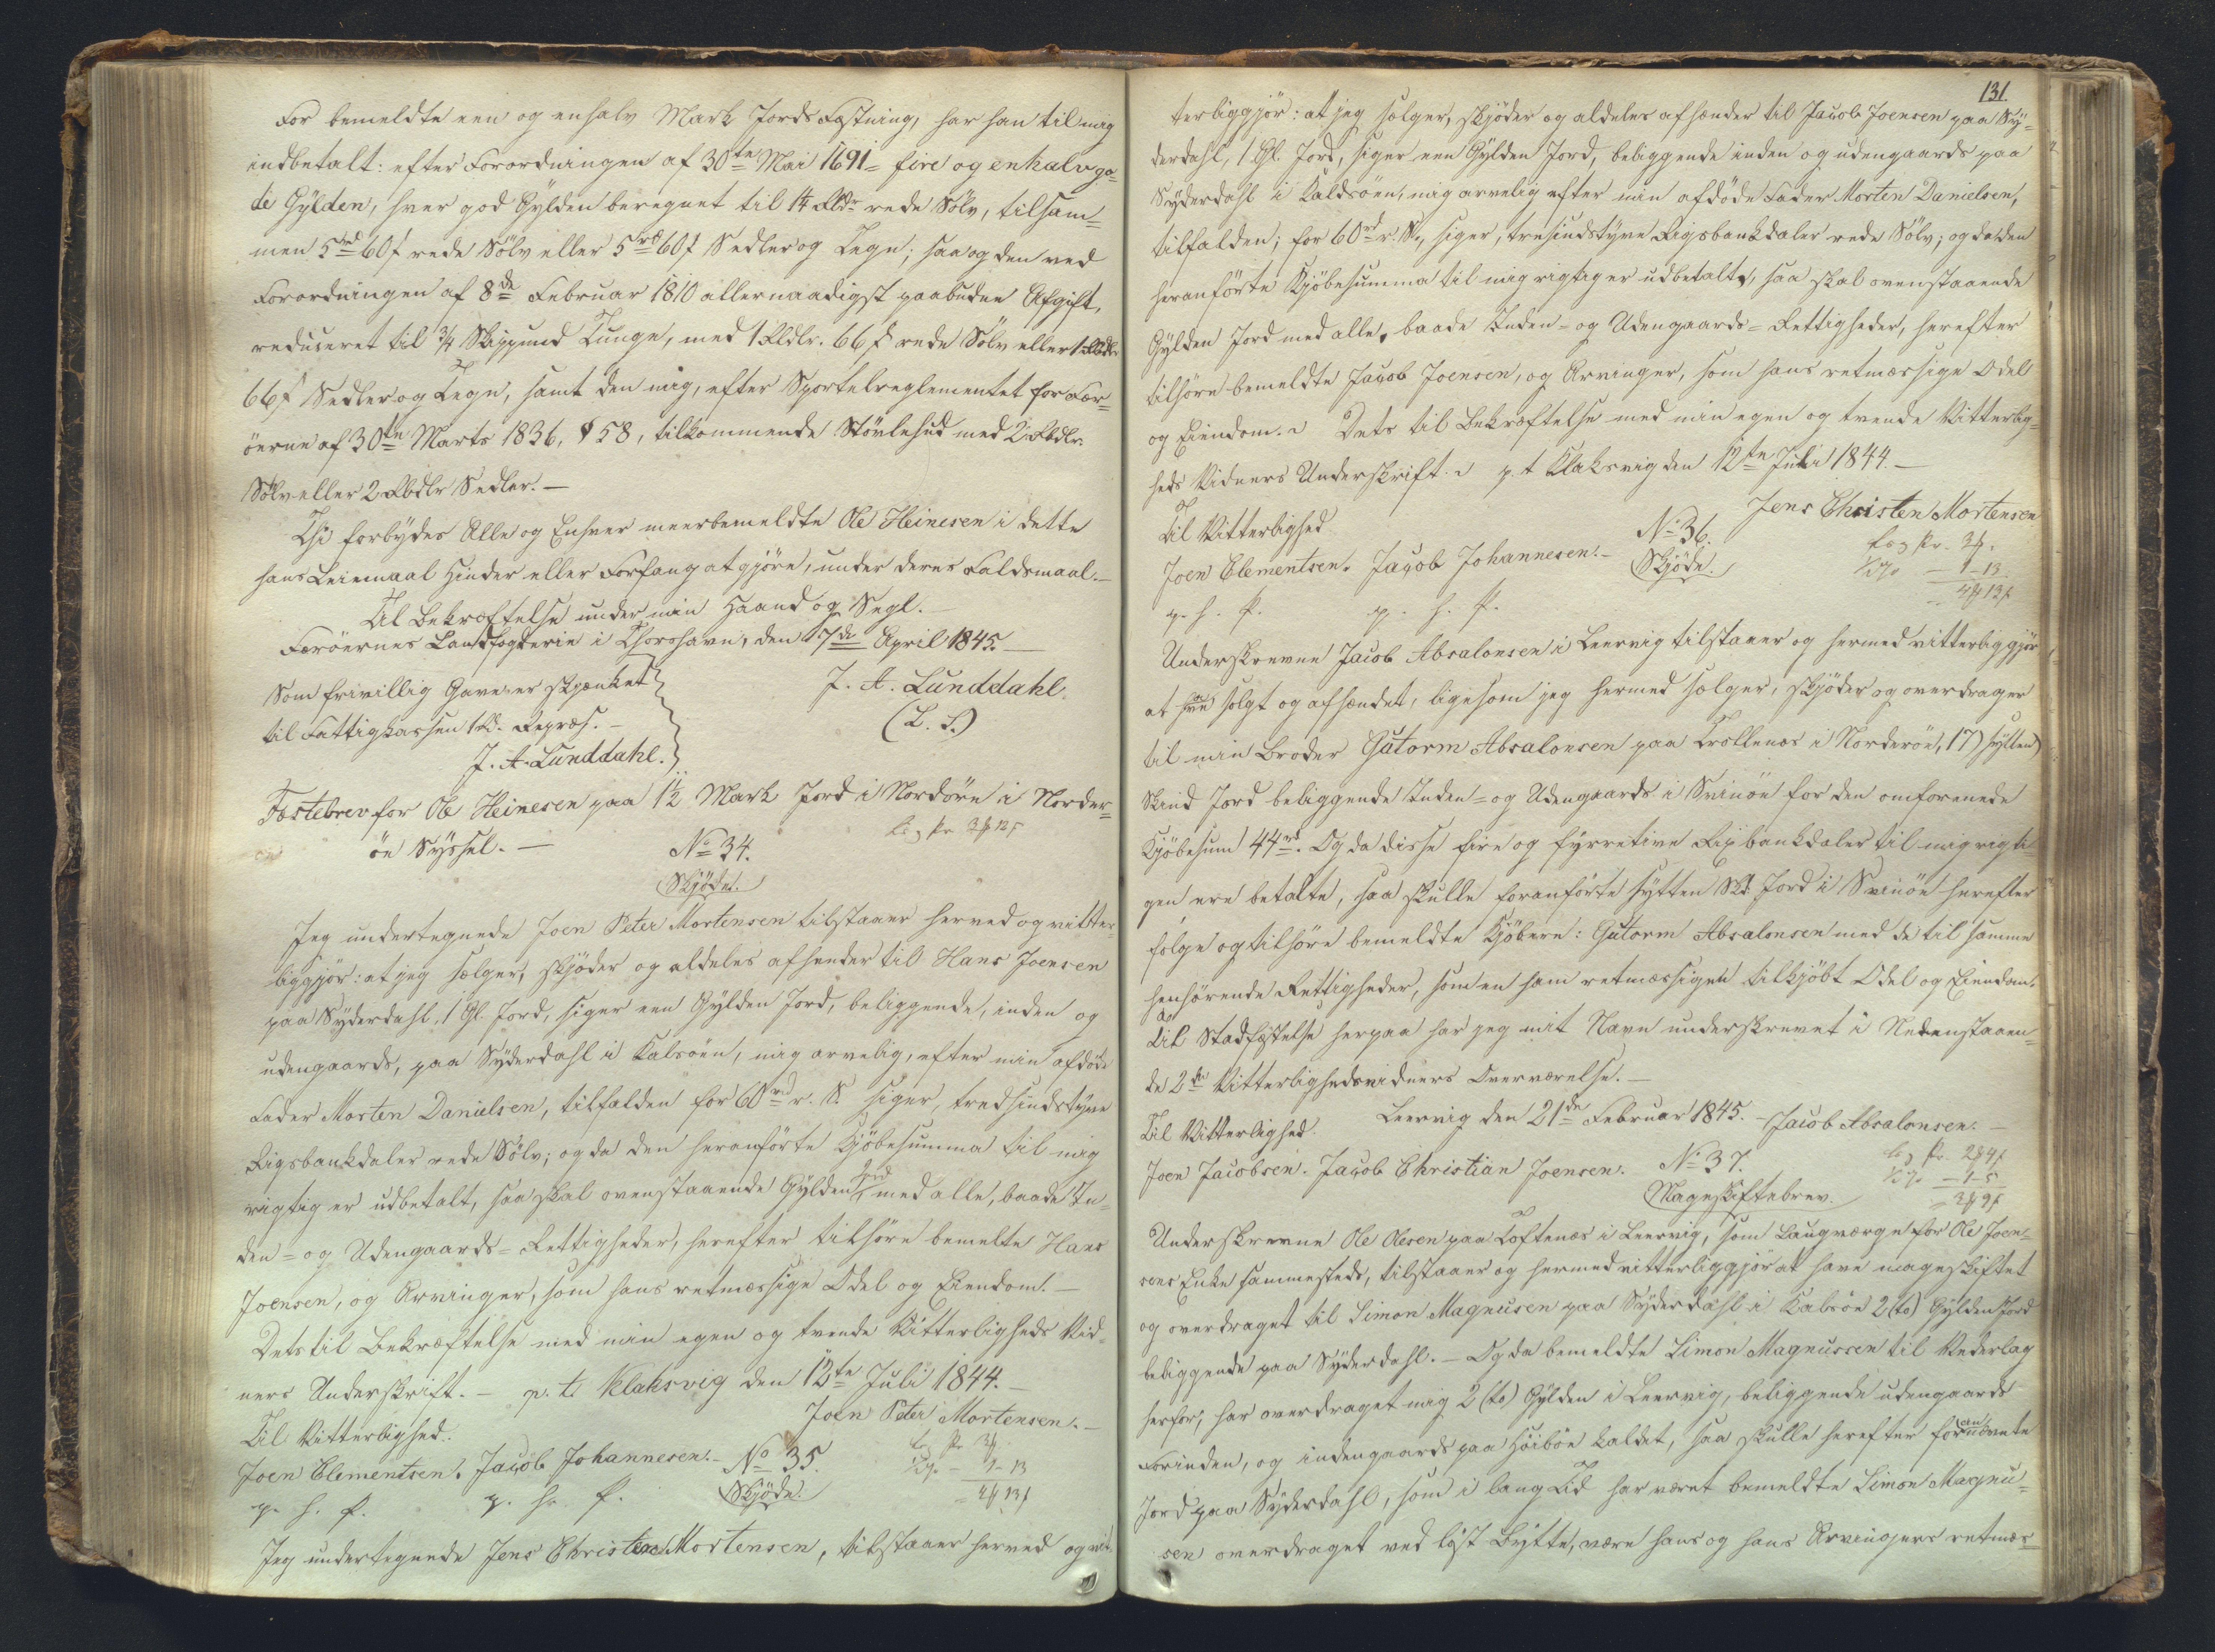 For bemeldte een og enhalv Mark Jords Fæstning, har han til mig
indbetalt: efter Forordningen af 30te Mai 1691 = fire og enhalv go-
de Gylden, hver god Gylden beregnet til 14 Rbdr rede Sølv, tilsam-
men 5rd 60f rede Sølv eller 5rd 60f Sedler og Tegn; saa og den ved
Forordningen af 8de Februar 1810 allernaadigst paabudne Afgift,
reduceret til 3/4 Skippund Tunge, med 1 Rbdlr. 66f rede Sølv eller 1 Rbdlr
66f Sedler og Tegn, samt den mig, efter Sportelreglementet for Fær-
øerne af 30te Marts 1836, § 58, tilkommende Støvlehud med 2 Rbdlr.
Sølv eller 2 Rbdlr Sedler. —
Thi forbydes Alle og Enhver meerbemeldte Ole Heinesen i dette
hans Leiemaal Hinder eller Forfang at gjøre, under deres Faldsmaal. —
Til Bekræftelse under min Haand og Segl. —
Færøernes Landfogderie i Thorshavn, den 7de April 1845. —
Som frivillig Gave er skjænket
til Fattigkassen 1 Rd. Repræs. —
J. A. Lunddahl.
J. A. Lunddahl.
(L. S.)
Fæstebrev for Ole Heinesen paa 1 1/2 Mark Jord i Nordøre i Norder-
øe Syssel. —
No 34.
Skjøde.
Jeg undertegnede Joen Peter Mortensen tilstaaer herved og vitter-
liggjør: at jeg sælger, skjøder og aldeles afhender til Hans Joensen
paa Syderdahl, 1 Gl. Jord, siger een Gylden Jord, beliggende, inden og
udengaards, paa Syderdahl i Kalsøen, mig arvelig, efter min afdøde
Fader Morten Danielsen, tilfalden for 60rd r. S. siger, tredsindstyve
Rigsbankdaler rede Sølv; og da den heranførte Kjøbesumma til mig
rigtig er udbetalt, saa skal ovenstaaende Gylden Jord med alle, baade In-
den- og Udengaards-Rettigheder, herefter tilhøre bemelte Hans
Joensen, og Arvinger, som hans retmæssige Odel og Eiendom. —
Dets til Bekræftelse med min egen og tvende Vitterligheds Vid-
ners Underskrift. — p. t. Klaksvig den 12te Juli 1844. —
Joen Peter Mortensen. —
Til Vitterlighed.
Joen Clementsen. Jacob Johannesen. —
p. h. P. p. h. P.
No 35.
Skjøde.
Jeg undertegnede Jens Christen Mortensen, tilstaaer herved og vit-
131.
terliggjør: at jeg sælger, skjøder og aldeles afhænder til Jacob Joensen paa Sy-
derdahl, 1 Gl. Jord, siger een Gylden Jord, beliggende inden og udengaards paa
Syderdahl i Kaldsøen, mig arvelig efter min afdøde Fader Morten Danielsen,
tilfalden; for 60rd r. S., siger, tresindstyve Rigsbankdaler rede Sølv; og da den
heranførte Kjøbesumma til mig rigtig er udbetalt, saa skal ovenstaaende
Gylden Jord med alle, baade Inden- og Udengaards-Rettigheder, herefter
tilhøre bemeldte Jacob Joensen, og Arvinger, som hans retmæssige Odel
og Eiendom. — Dets til Bekræftelse med min egen og tvende Vitterlig-
heds Vidners Underskrift. — p. t Klaksvig den 12te Juli 1844. —
Jens Christen Mortensen
Til Vitterlighed
Joen Clementsen. Jacob Johannesen. —
p. h. P. p. h. P.
No 36.
Skjøde.
Underskrevne Jacob Absalonsen i Leervig tilstaaer og hermed vitterliggjør
at have solgt og afhændet, ligesom jeg hermed sælger, skjøder og overdrager
til min Broder Gutorm Absalonsen paa Trøllenæs i Norderøe, 17) sytten)
Skind Jord beliggende Inden- og Udengaards i Svinøe for den omforenede
Kjøbesum 44rd. Og da disse fire og fyrretive Rigsbankdaler til mig rigti-
gen ere betalte, saa skulle foranførte sytten Skd. Jord i Svinøe herefter
følge og tilhøre bemeldte Kjøbere: Gutorm Absalonsen med de til samme
henhørende Rettigheder, som en ham retmæssigen tilkjøbt Odel og Eiendom.
Til Stadfæstelse herpaa har jeg mit Navn underskrevet i Nedenstaaen-
de 2de Vitterlighedsvidners Overværelse. —
Leervig den 21de Februar 1845. — Jacob Absalonsen. —
Til Vitterlighed.
Joen Jacobsen. Jacob Christian Joensen.
No 37.
Mageskiftebrev.
Underskrevne Ole Olesen paa Toftenæs i Leervig, som Laugværge for Ole Joen-
sens Enke sammesteds, tilstaaer og hermed vitterliggjør at have mageskiftet
og overdraget til Simon Magnusen paa Syderdahl i Kalsøe 2 (to) Gylden Jord
beliggende paa Syderdahl. — Og da bemeldte Simon Magnussen til Vederlag
herfor, har overdraget mig 2 (to) Gylden i Leervig, beliggende udengaards
Forinden, og indengaards paa Høibøe kaldet, saa skulle herefter forannævnte
Jord paa Syderdahl, som i lang Tid har været bemeldte Simon Magnu-
sen overdraget ved løst Bytte, være hans og hans Arvingers retmæs-